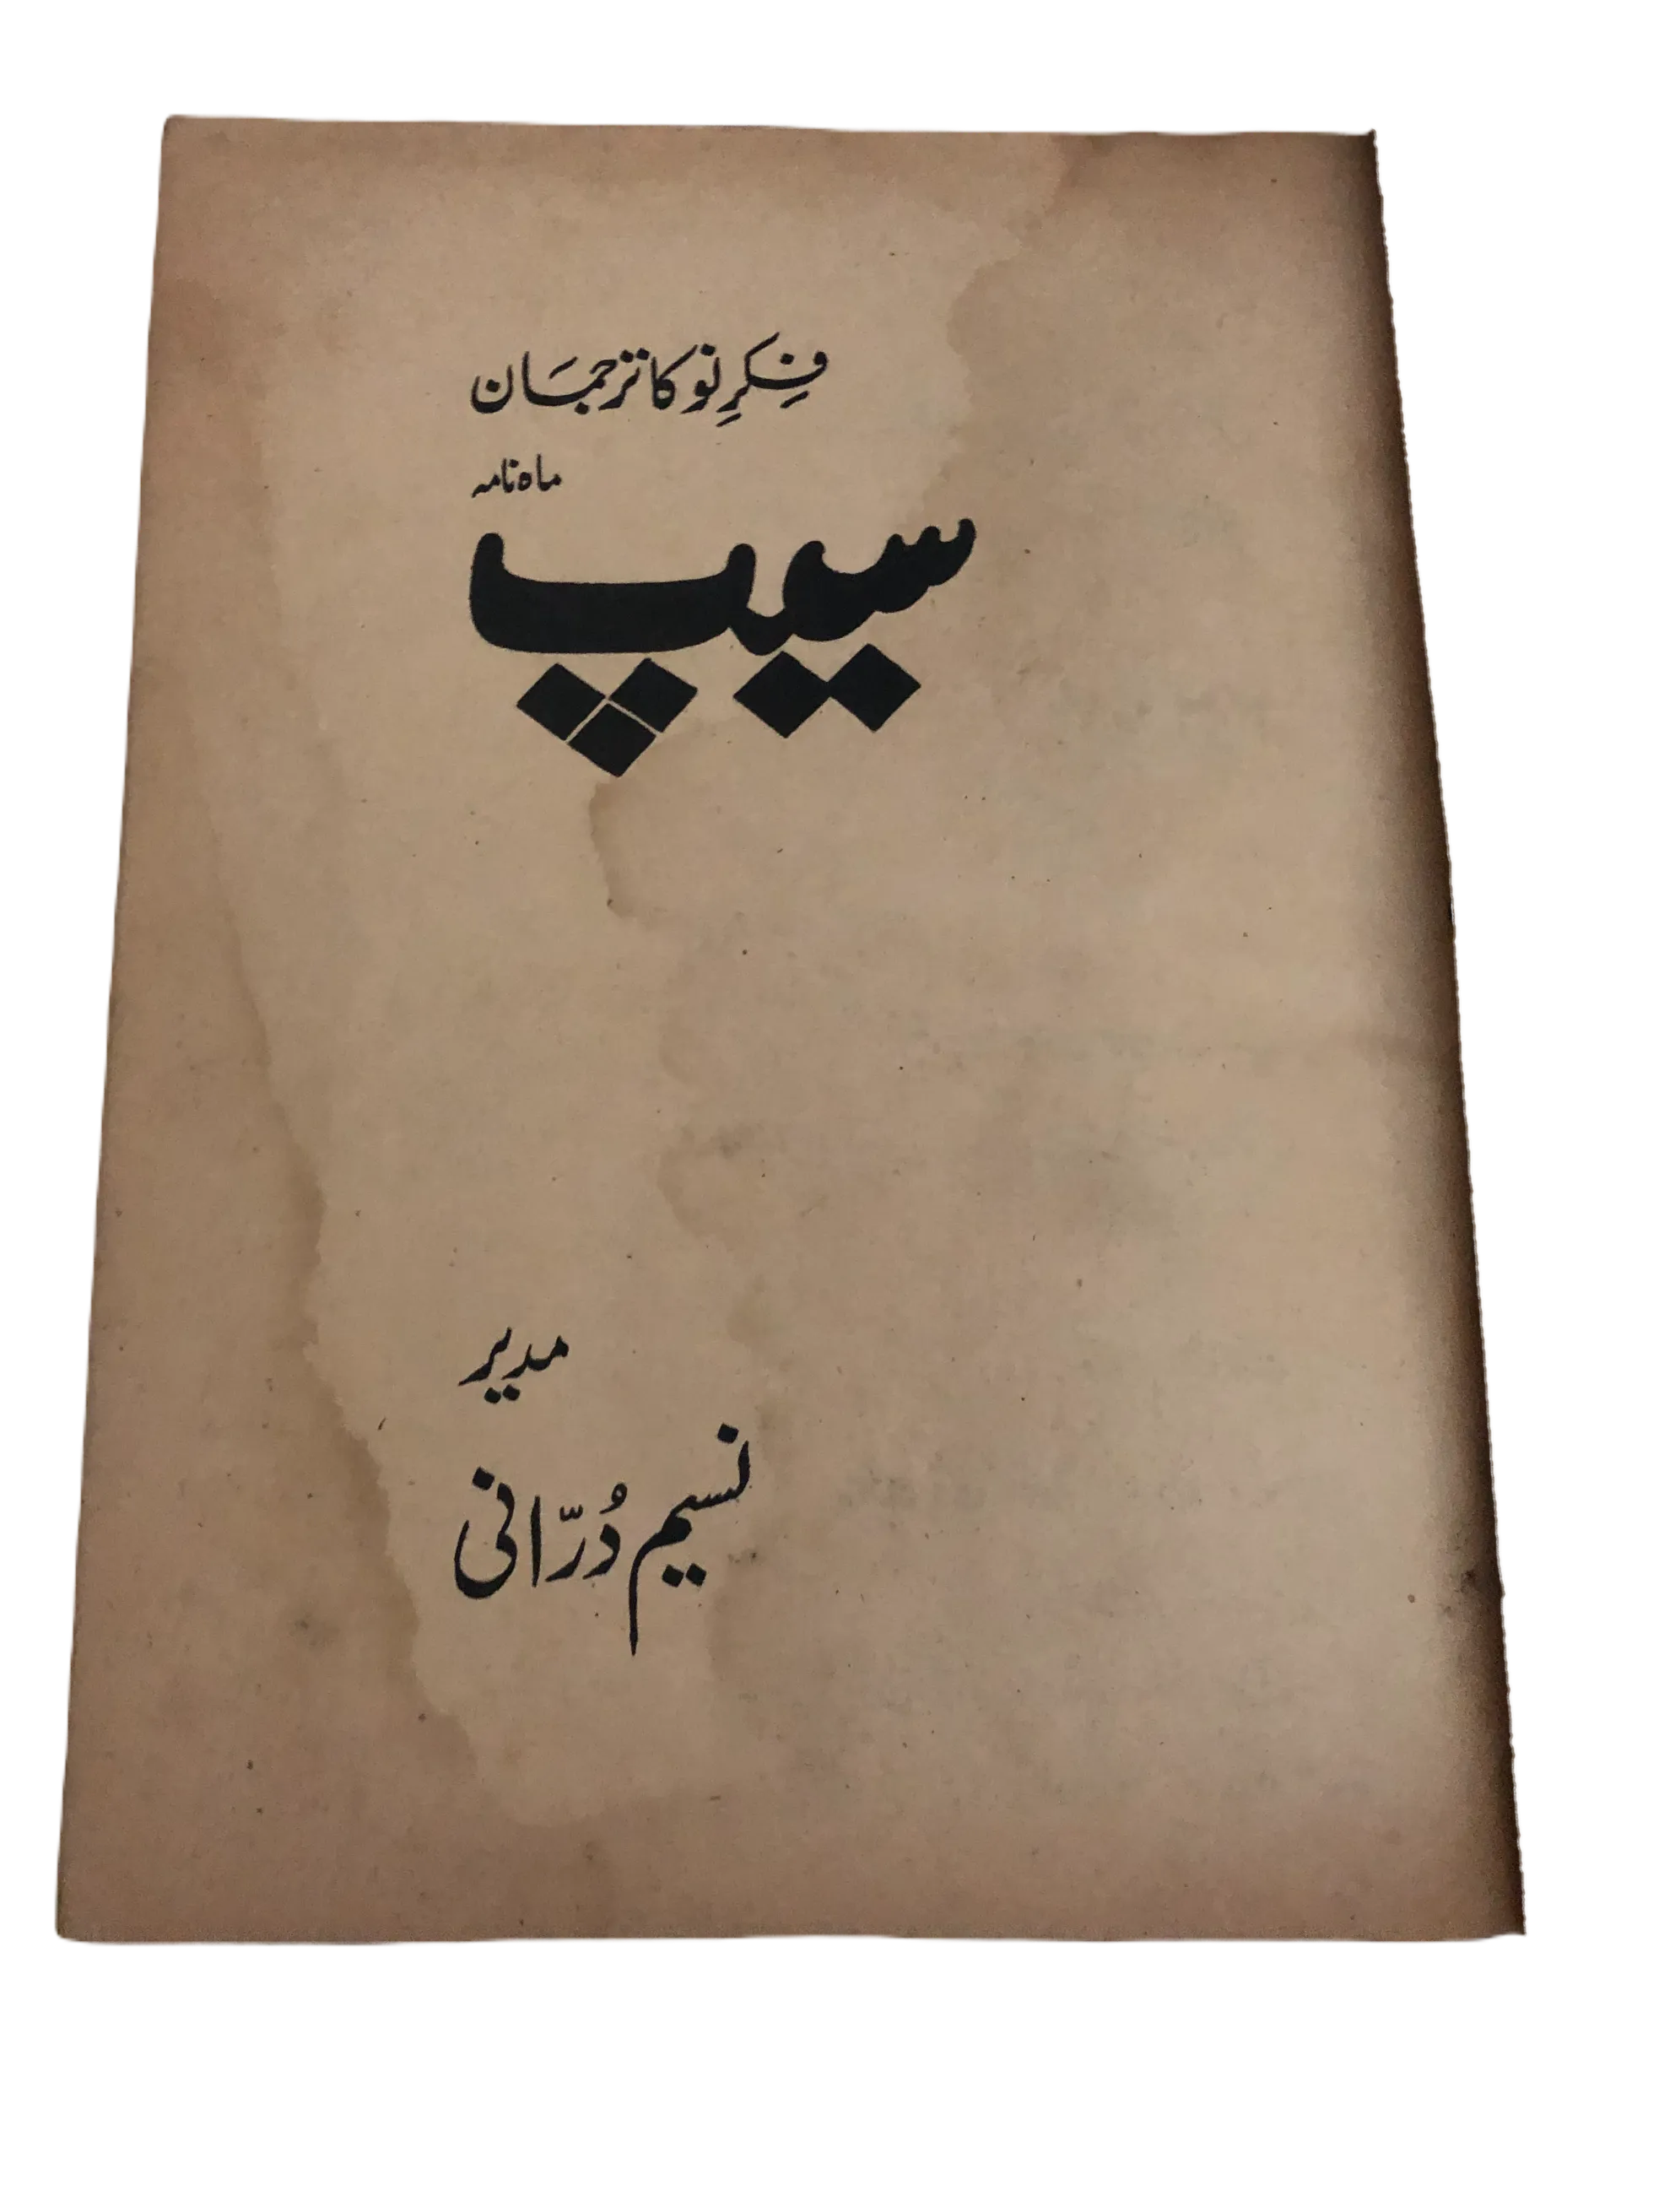 فِکرِ نَو کا ترجمَان
ماہ نامہ
سیپ
مدیر
نسیم دُرّانی